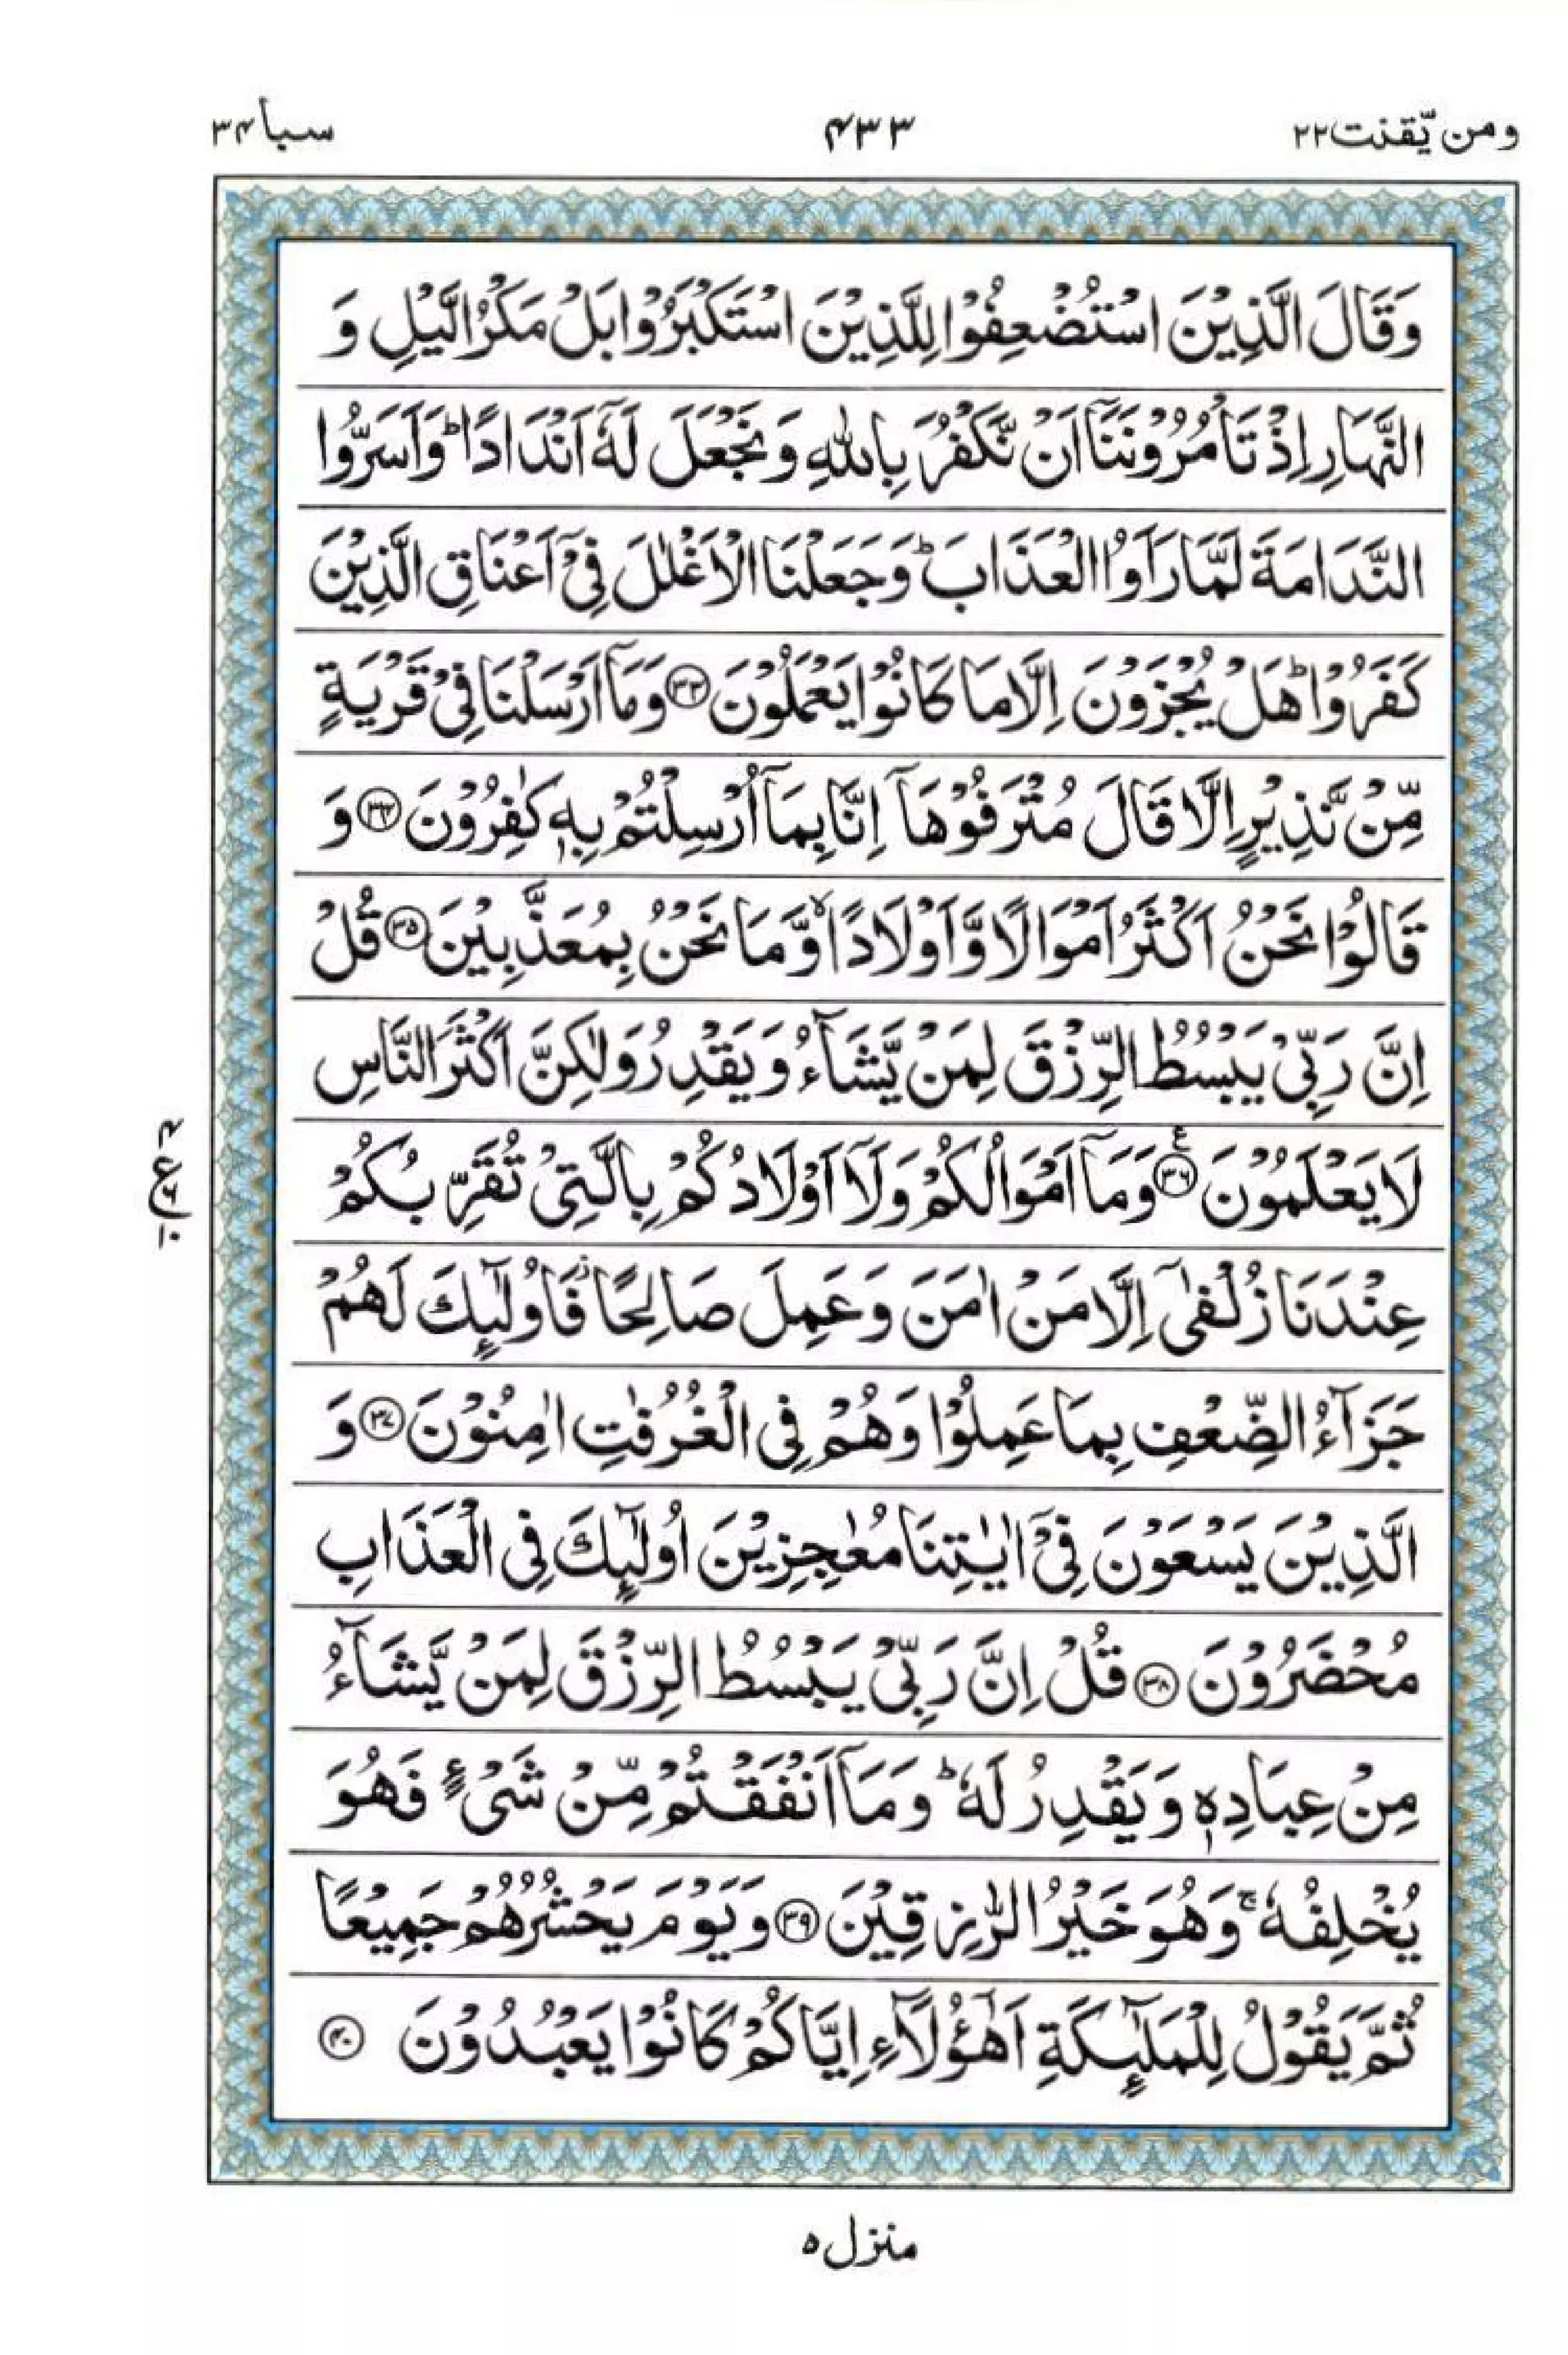 ومن یّقنت ۲۲
۴۳۳
سبا ۳۴
وَقَالَ الَّذِیْنَ اسْتُضْعِفُوْا لِلَّذِیْنَ اسْتَكْبَرُوْا بَلْ مَكْرُ الَّیْلِ وَ
النَّهَارِ اِذْ تَاْمُرُوْنَنَاۤ اَنْ نَّكْفُرَ بِاللّٰهِ وَ نَجْعَلَ لَهٗۤ اَنْدَادًا ؕ وَ اَسَرُّوا
النَّدَامَةَ لَمَّا رَاَوُا الْعَذَابَ ؕ وَ جَعَلْنَا الْاَغْلٰلَ فِیْۤ اَعْنَاقِ الَّذِیْنَ
كَفَرُوْا ؕ هَلْ یُجْزَوْنَ اِلَّا مَا كَانُوْا یَعْمَلُوْنَ ۝۳۳ وَ مَاۤ اَرْسَلْنَا فِیْ قَرْیَةٍ
مِّنْ نَّذِیْرٍ اِلَّا قَالَ مُتْرَفُوْهَاۤ اِنَّا بِمَاۤ اُرْسِلْتُمْ بِهٖ كٰفِرُوْنَ ۝۳۴ وَ
قَالُوْا نَحْنُ اَكْثَرُ اَمْوَالًا وَّ اَوْلَادًا ۙ وَّ مَا نَحْنُ بِمُعَذَّبِیْنَ ۝۳۵ قُلْ
اِنَّ رَبِّیْ یَبْسُطُ الرِّزْقَ لِمَنْ یَّشَآءُ وَ یَقْدِرُ وَ لٰكِنَّ اَكْثَرَ النَّاسِ
لَا یَعْلَمُوْنَ ۝۳۶ۧ وَ مَاۤ اَمْوَالُكُمْ وَ لَاۤ اَوْلَادُكُمْ بِالَّتِیْ تُقَرِّبُكُمْ
عِنْدَنَا زُلْفٰۤی اِلَّا مَنْ اٰمَنَ وَ عَمِلَ صَالِحًا ؗ فَاُولٰٓىِٕكَ لَهُمْ
جَزَآءُ الضِّعْفِ بِمَا عَمِلُوْا وَ هُمْ فِی الْغُرُفٰتِ اٰمِنُوْنَ ۝۳۷ وَ
الَّذِیْنَ یَسْعَوْنَ فِیْۤ اٰیٰتِنَا مُعٰجِزِیْنَ اُولٰٓىِٕكَ فِی الْعَذَابِ
مُحْضَرُوْنَ ۝۳۸ قُلْ اِنَّ رَبِّیْ یَبْسُطُ الرِّزْقَ لِمَنْ یَّشَآءُ
مِنْ عِبَادِهٖ وَ یَقْدِرُ لَهٗ ؕ وَ مَاۤ اَنْفَقْتُمْ مِّنْ شَیْءٍ فَهُوَ
یُخْلِفُهٗ ۚ وَ هُوَ خَیْرُ الرّٰزِقِیْنَ ۝۳۹ وَ یَوْمَ یَحْشُرُهُمْ جَمِیْعًا
ثُمَّ یَقُوْلُ لِلْمَلٰٓىِٕكَةِ اَهٰۤؤُلَآءِ اِیَّاكُمْ كَانُوْا یَعْبُدُوْنَ ۝۴۰
ع
منزل ۵